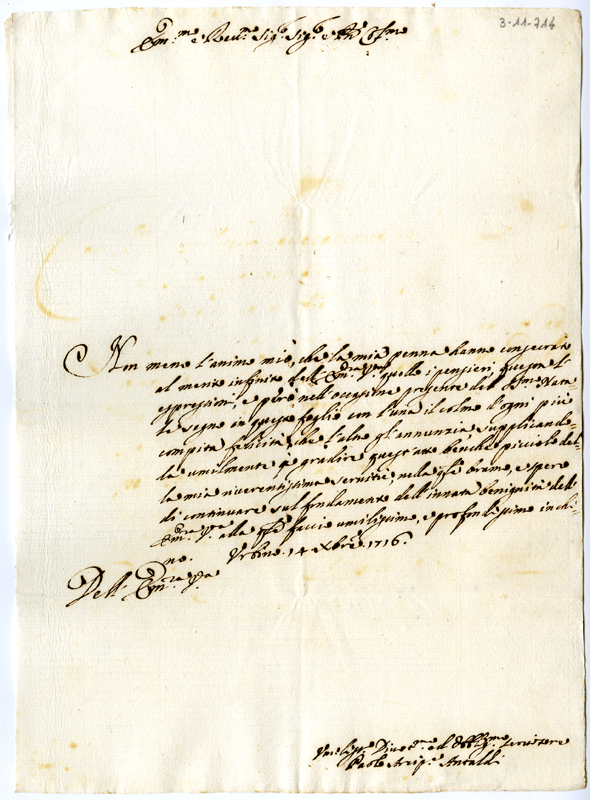 3-11-714
Em.mo e Rev.mo Sig.r Sig.r e Pñe Col.mo
Non meno l'animo mio, che la mia penna hanno consecrato
al merito infinito dell'Em.za V.ra quello i pensieri, questa l'
espressioni, e però nell'occasione presente del S.mo Nata
le vegno in questo foglio con l'una il colmo d'ogni più
compita felicità, che l'altro gl'annunzia, supplicando=
la umilmente à gradire quest'atto benche picciolo del=
la mia riverentissima servitù, nella q̃le bramo, e spero
di continuare sul fondamento dell'innata benignità dell'
Em.za V.ra alla q̃le faccio umilissimo, e profondissimo inchi=
no. Urbino 14 Xbre 1716.
Dell' Em.za V.ra
Um.lissmo Divot.mo ed Obb.mo Servitore
Paolo Arcip.e Antaldi